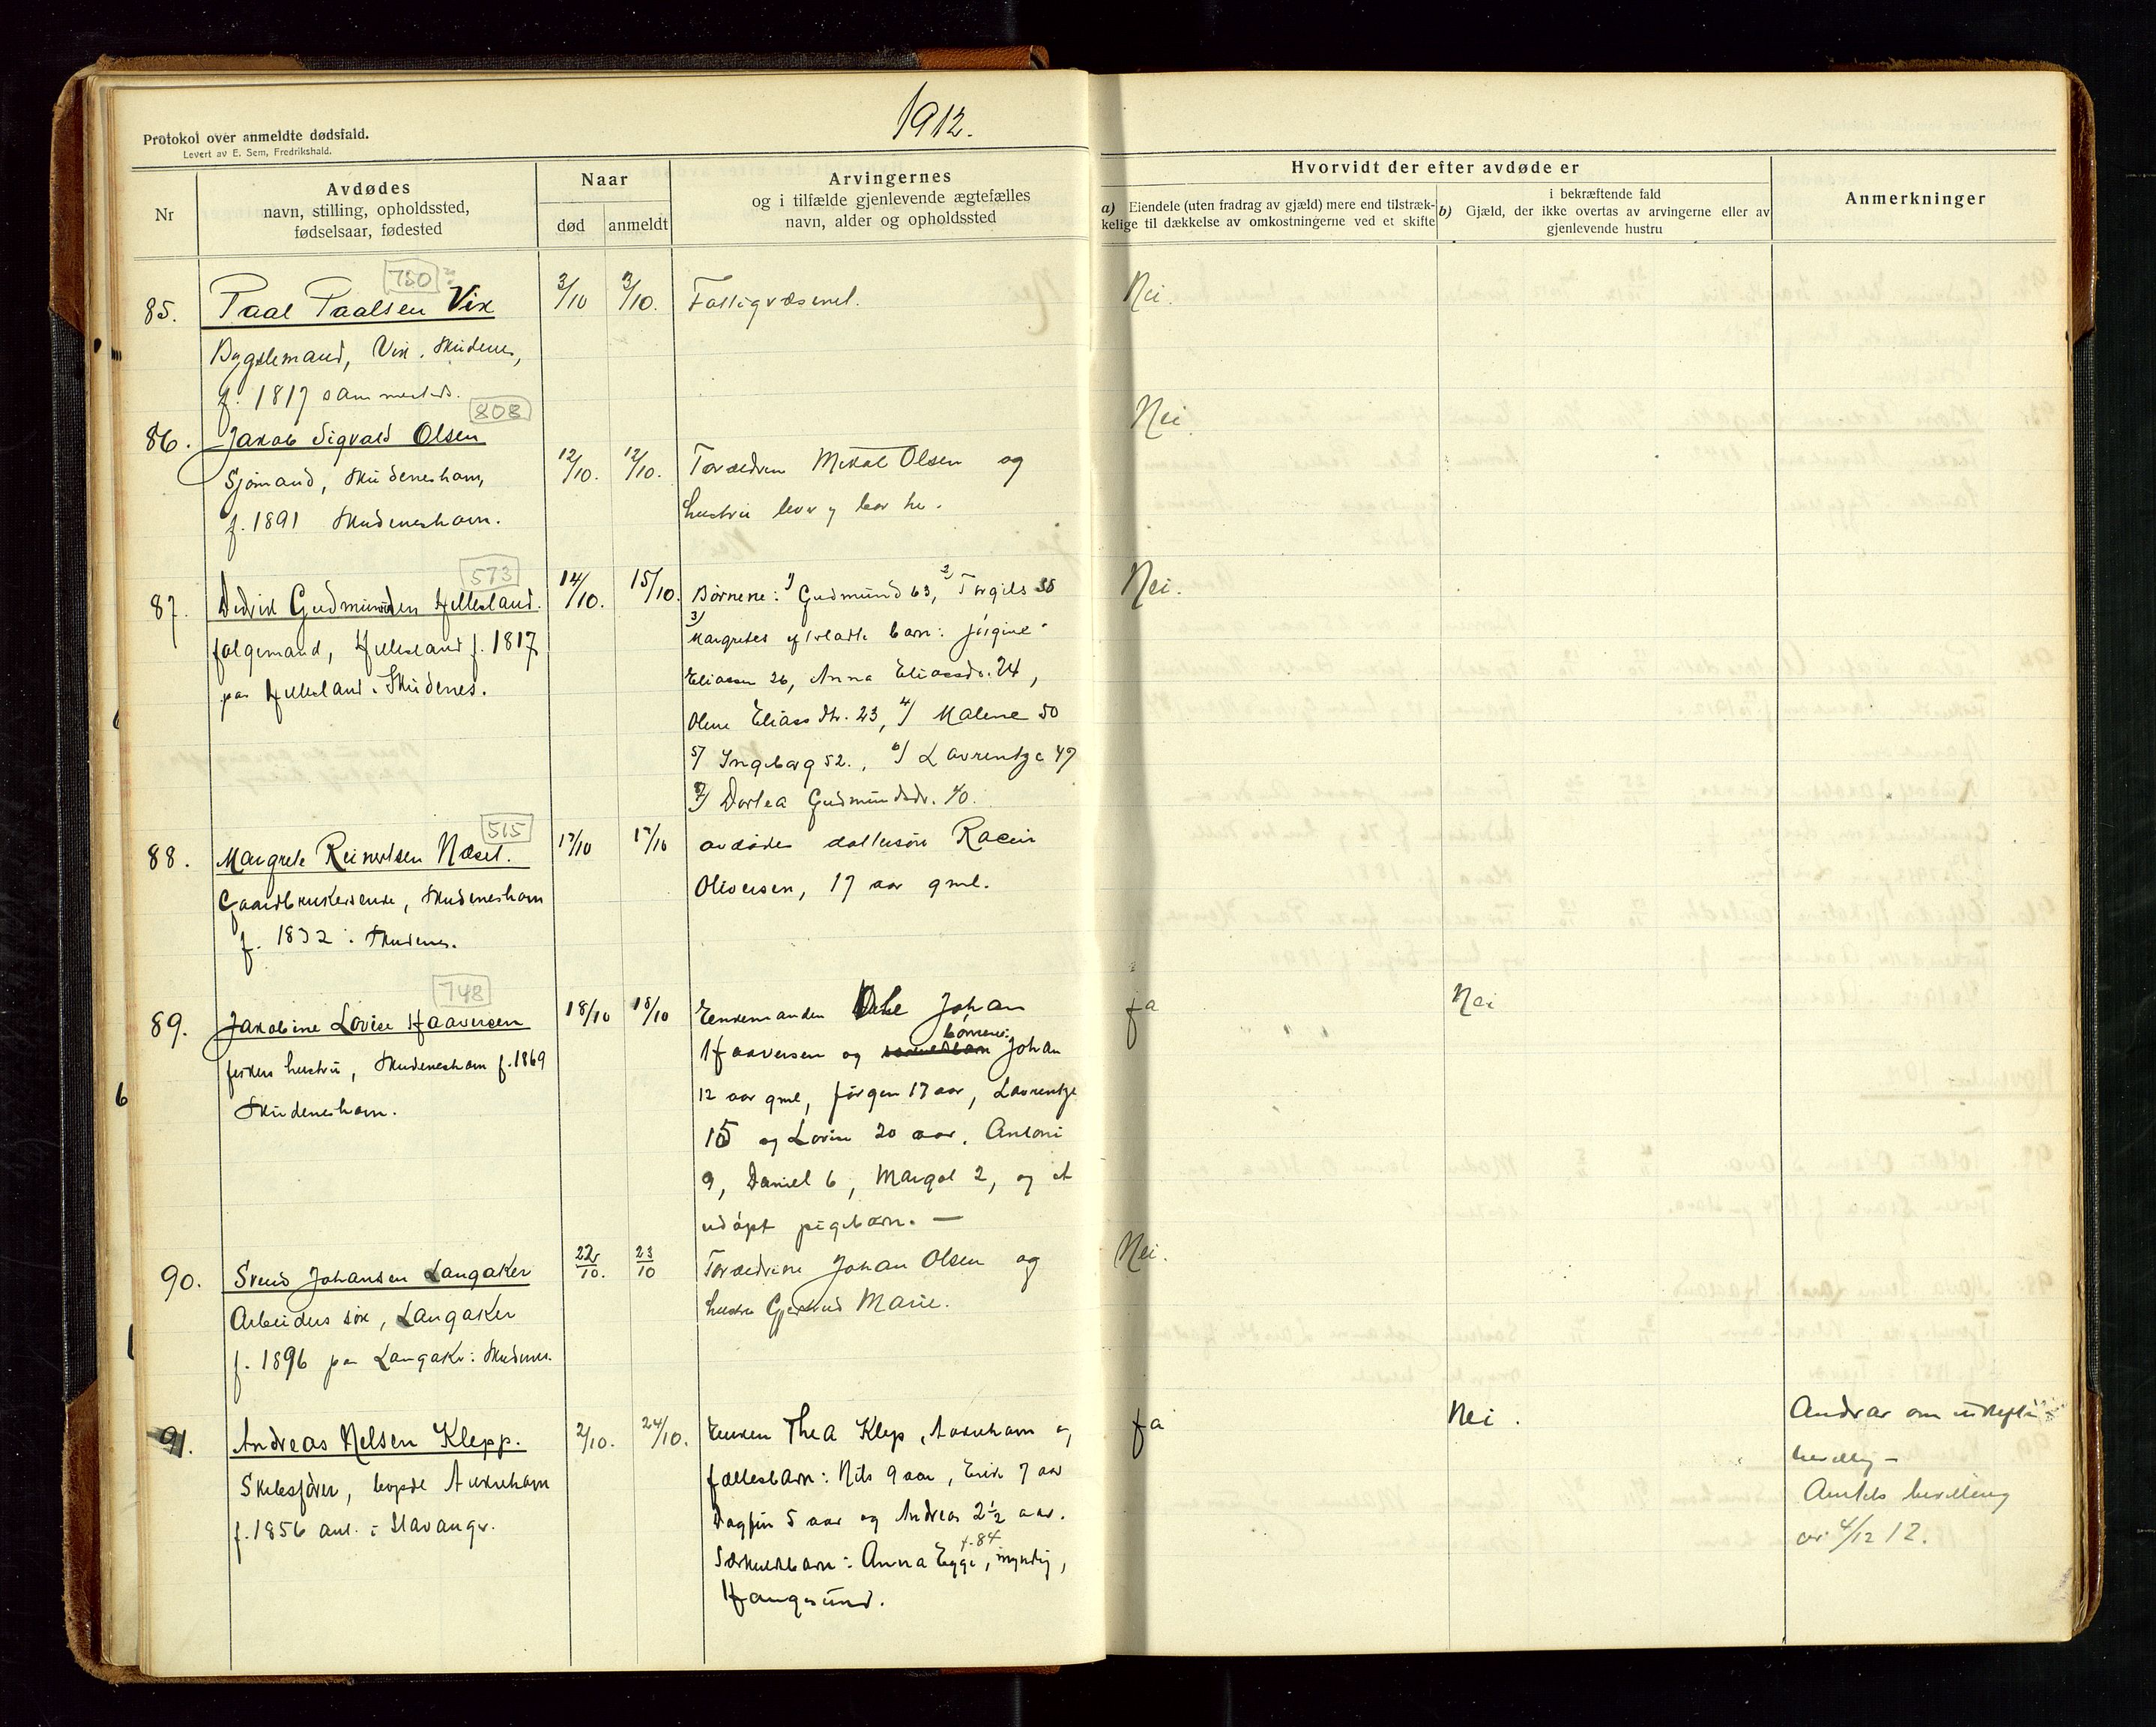 1912.
Protokol over anmeldte dødsfald.
Levert av E. Sem, Fredrikshald.
Nr
Avdødes
navn, stilling, opholdssted,
fødselsaar, fødested
Naar
død
anmeldt
Arvingernes
og i tilfælde gjenlevende ægtefælles
navn, alder og opholdssted
Hvorvidt der efter avdøde er
a) Eiendele (uten fradrag av gjæld) mere end tilstræk-
kelige til dækkelse av omkostningerne ved et skifte
i bekræftende fald
b) Gjæld, der ikke overtas av arvingerne eller av
gjenlevende hustru
Anmerkninger
750
85. Paal Paalsen Vik 3/10 3/10. Fattigvæsenet. Nei.
Bygslemand, Vik i Skudenes,
f. 1817 sammesteds.
808
86. Jakob Sigvald Olsen Nei
Sjömand, Skudeneshavn, 12/10. 12/10. Forældrene Mikal Olsen og
f. 1891 Skudeneshavn. hustru
573
87. Didrik Gudmundsen Hillesland. 14/10. 15/10. Børnene: 1) Gudmund 63, 2) Torgils 55 Nei.
folgemand, Hillesland f. 1817 3) Margretes efterladte barn: Jörgine
paa Hillesland i Skudenes. Eliassen 26, Anna Eliasdr. 24,
Oline Eliasdtr. 23, 4) Malene 50
5) Ingeborg 52., 6) Lavrentze 47
7) Dortea Gudmundsdr. 40.
515
88. Margrete Reinertsen Næset. 17/10 17/10 avdødes dattersön
Gaardbrukerenke, Skudeneshavn Oliversen, 17 aar gml.
f. 1832 i Skudenes.
748
89. Jakobine Lovise Haaversen 18/10 18/10 Enkemanden Johan ja Nei
fiskers hustru, Skudeneshavn f. 1869 Haaversen og börnene: Johan
Skudeneshavn. 12 aar gml, Jörgen 17 aar, Lavrentze
15 og Lovise 20 aar, Antoni
9, Daniel 6, Margot 2, og et
udöpt pigebarn. —
90. Svend Johansen Langaker 22/10. 23/10 Forældrene Johan Olsen og Nei.
Arbeiders sön, Langaker hustru Gjertrud Marie.
f. 1896 paa Langaker i Skudenes.
91. Andreas Nelsen Klepp. 2/10. 24/10. Enken Thea Klep, Aakrehavn og ja Nei. Andrar om uskifte
Skibsförer, bopæl Aakrehavn fællesbarn: Nils 9 aar, Erik 7 aar bevilling –
f. 1856 ant. i Stavanger. Dagfin 5 aar og Andreas 2½ aar. Amtets bevilling
Særkuldbarn: Anna Egge, f. 84 myndig, av 4/12 12.
Haugesund.